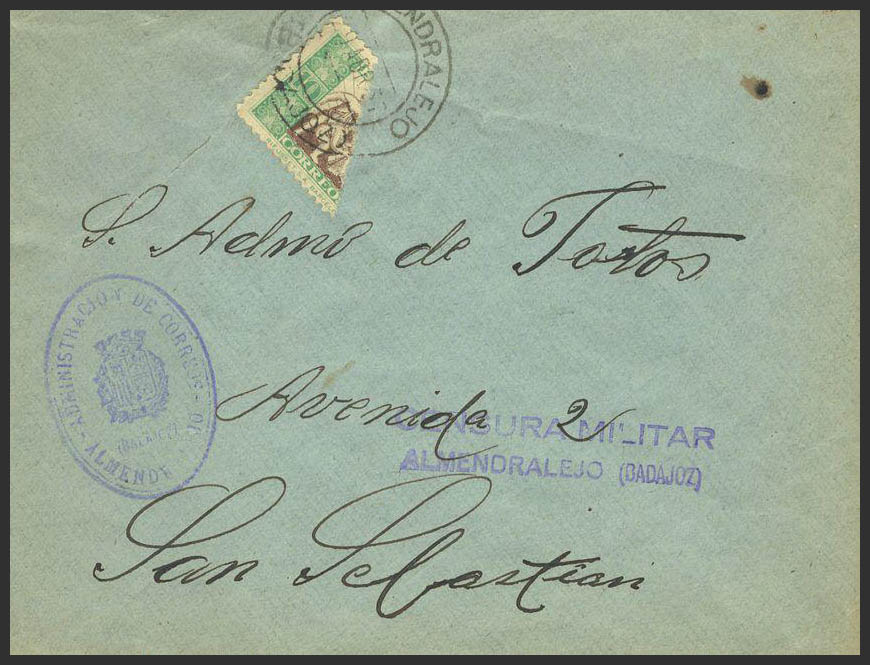 ENDRALEJO
CORREO
S. Admõ de Tastos
ADMINISTRACION DE CORREOS DE
ALMENDR
(BADAJOZ)
Avenida 2
CENSURA MILITAR
ALMENDRALEJO (BADAJOZ)
San Sebastian